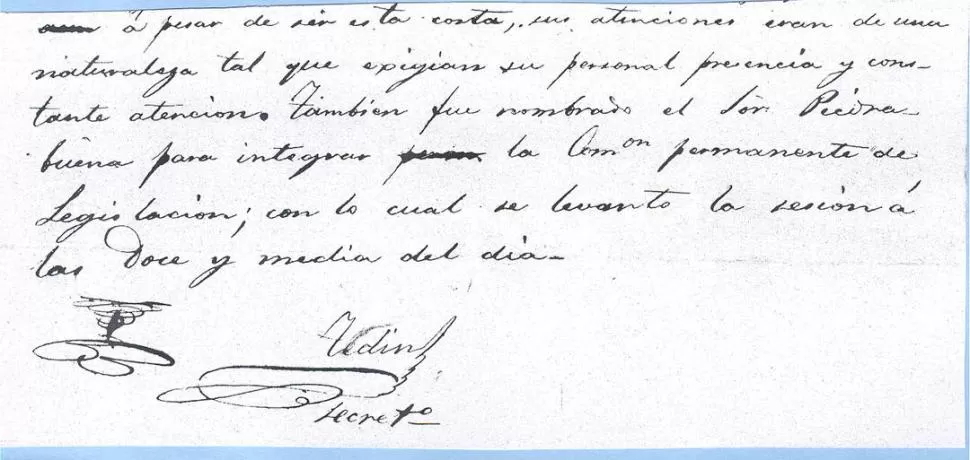 á pesar de ser esta costa, sus atenciones eran de una
naturaleza tal que exigian su personal presencia y cons-
tante atencion. Tambien fue nombrado el Sõr. Piedra-
buena para integrar la Comon permanente de
Legislacion; con lo cual se levanto la sesion á
las Doce y media del dia-
Secreto